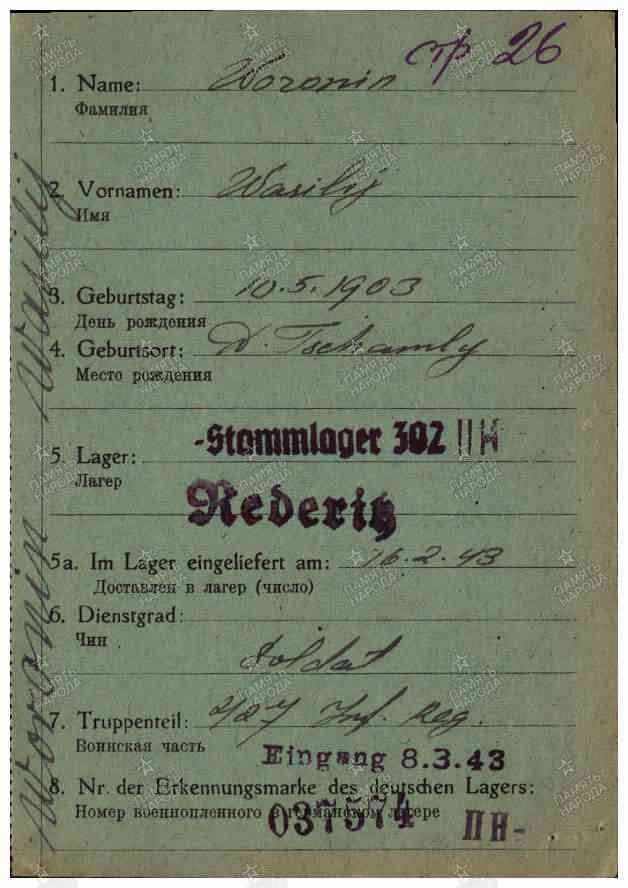 стр 26
1. Name: Woronin
Фамилия
2. Vornamen: Wasilij
Имя
3. Geburtstag: 10.5.1903
День рождения
4. Geburtsort: D. Tschamly
Место рождения
-Stammlager 302 II H
5. Lager:
Лагер
Rederitz
5a. Im Lager eingeliefert am: 16.2.43
Доставлен в лагер (число)
6. Dienstgrad:
Чин
Soldat
7. Truppenteil: 727 Inf. Reg.
Воинская часть
Eingang 8.3.43
8. Nr. der Erkennungsmarke des deutschen Lagers:
Номер военнопленного в германском лагере
037574 II H-
Woronin Wasilij
ПАМЯТЬ
НАРОДА